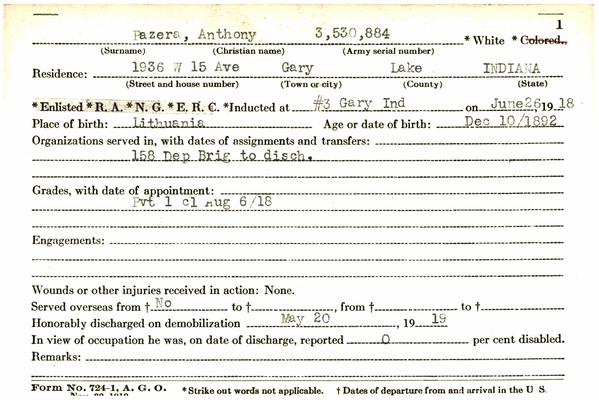 1
Pazera, Anthony 3,530,884 * White * Colored.
(Surname) (Christian name) (Army serial number)
Residence: 1936 W 15 Ave Gary Lake INDIANA
(Street and house number) (Town or city) (County) (State)
*Enlisted *R. A. *N. G. *E. R. C. *Inducted at #3 Gary Ind on June26, 1918
Place of birth: Lithuania Age or date of birth: Dec 10/1892
Organizations served in, with dates of assignments and transfers:
158 Dep Brig to disch.
Grades, with date of appointment:
Pvt 1 cl Aug 6/18
Engagements:
Wounds or other injuries received in action: None.
Served overseas from † No to †, from † to †
Honorably discharged on demobilization May 20, 19 19
In view of occupation he was, on date of discharge, reported 0 per cent disabled.
Remarks:
Form No. 724-1, A. G. O. *Strike out words not applicable. † Dates of departure from and arrival in the U S.